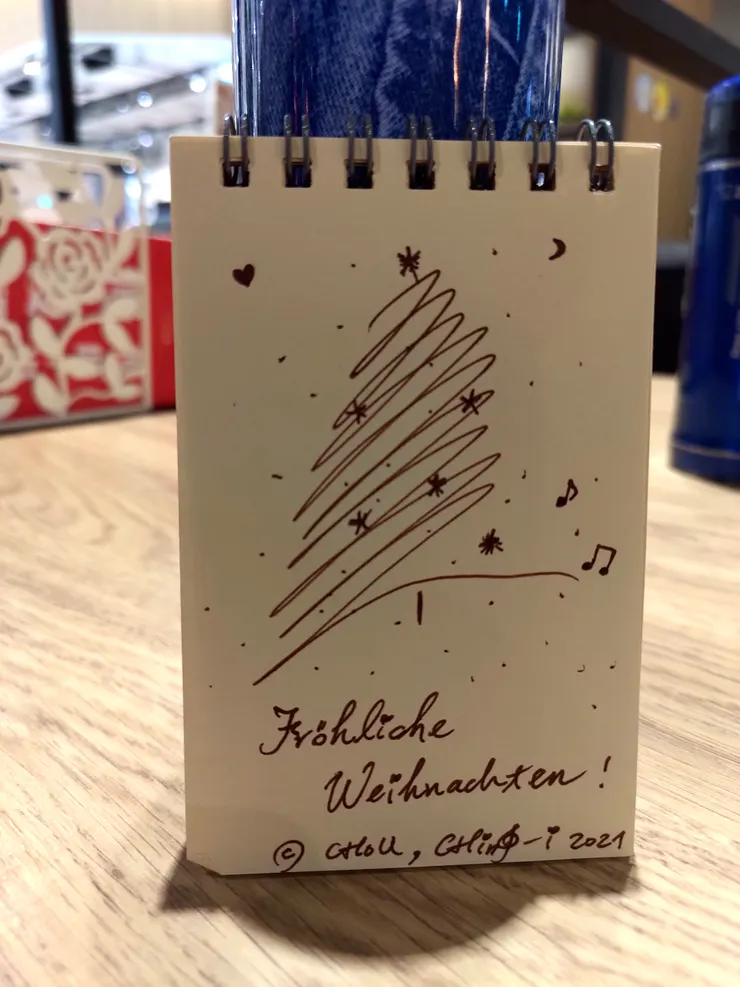 Fröhliche
Weihnachten !
© CHOU, CHing-i 2021